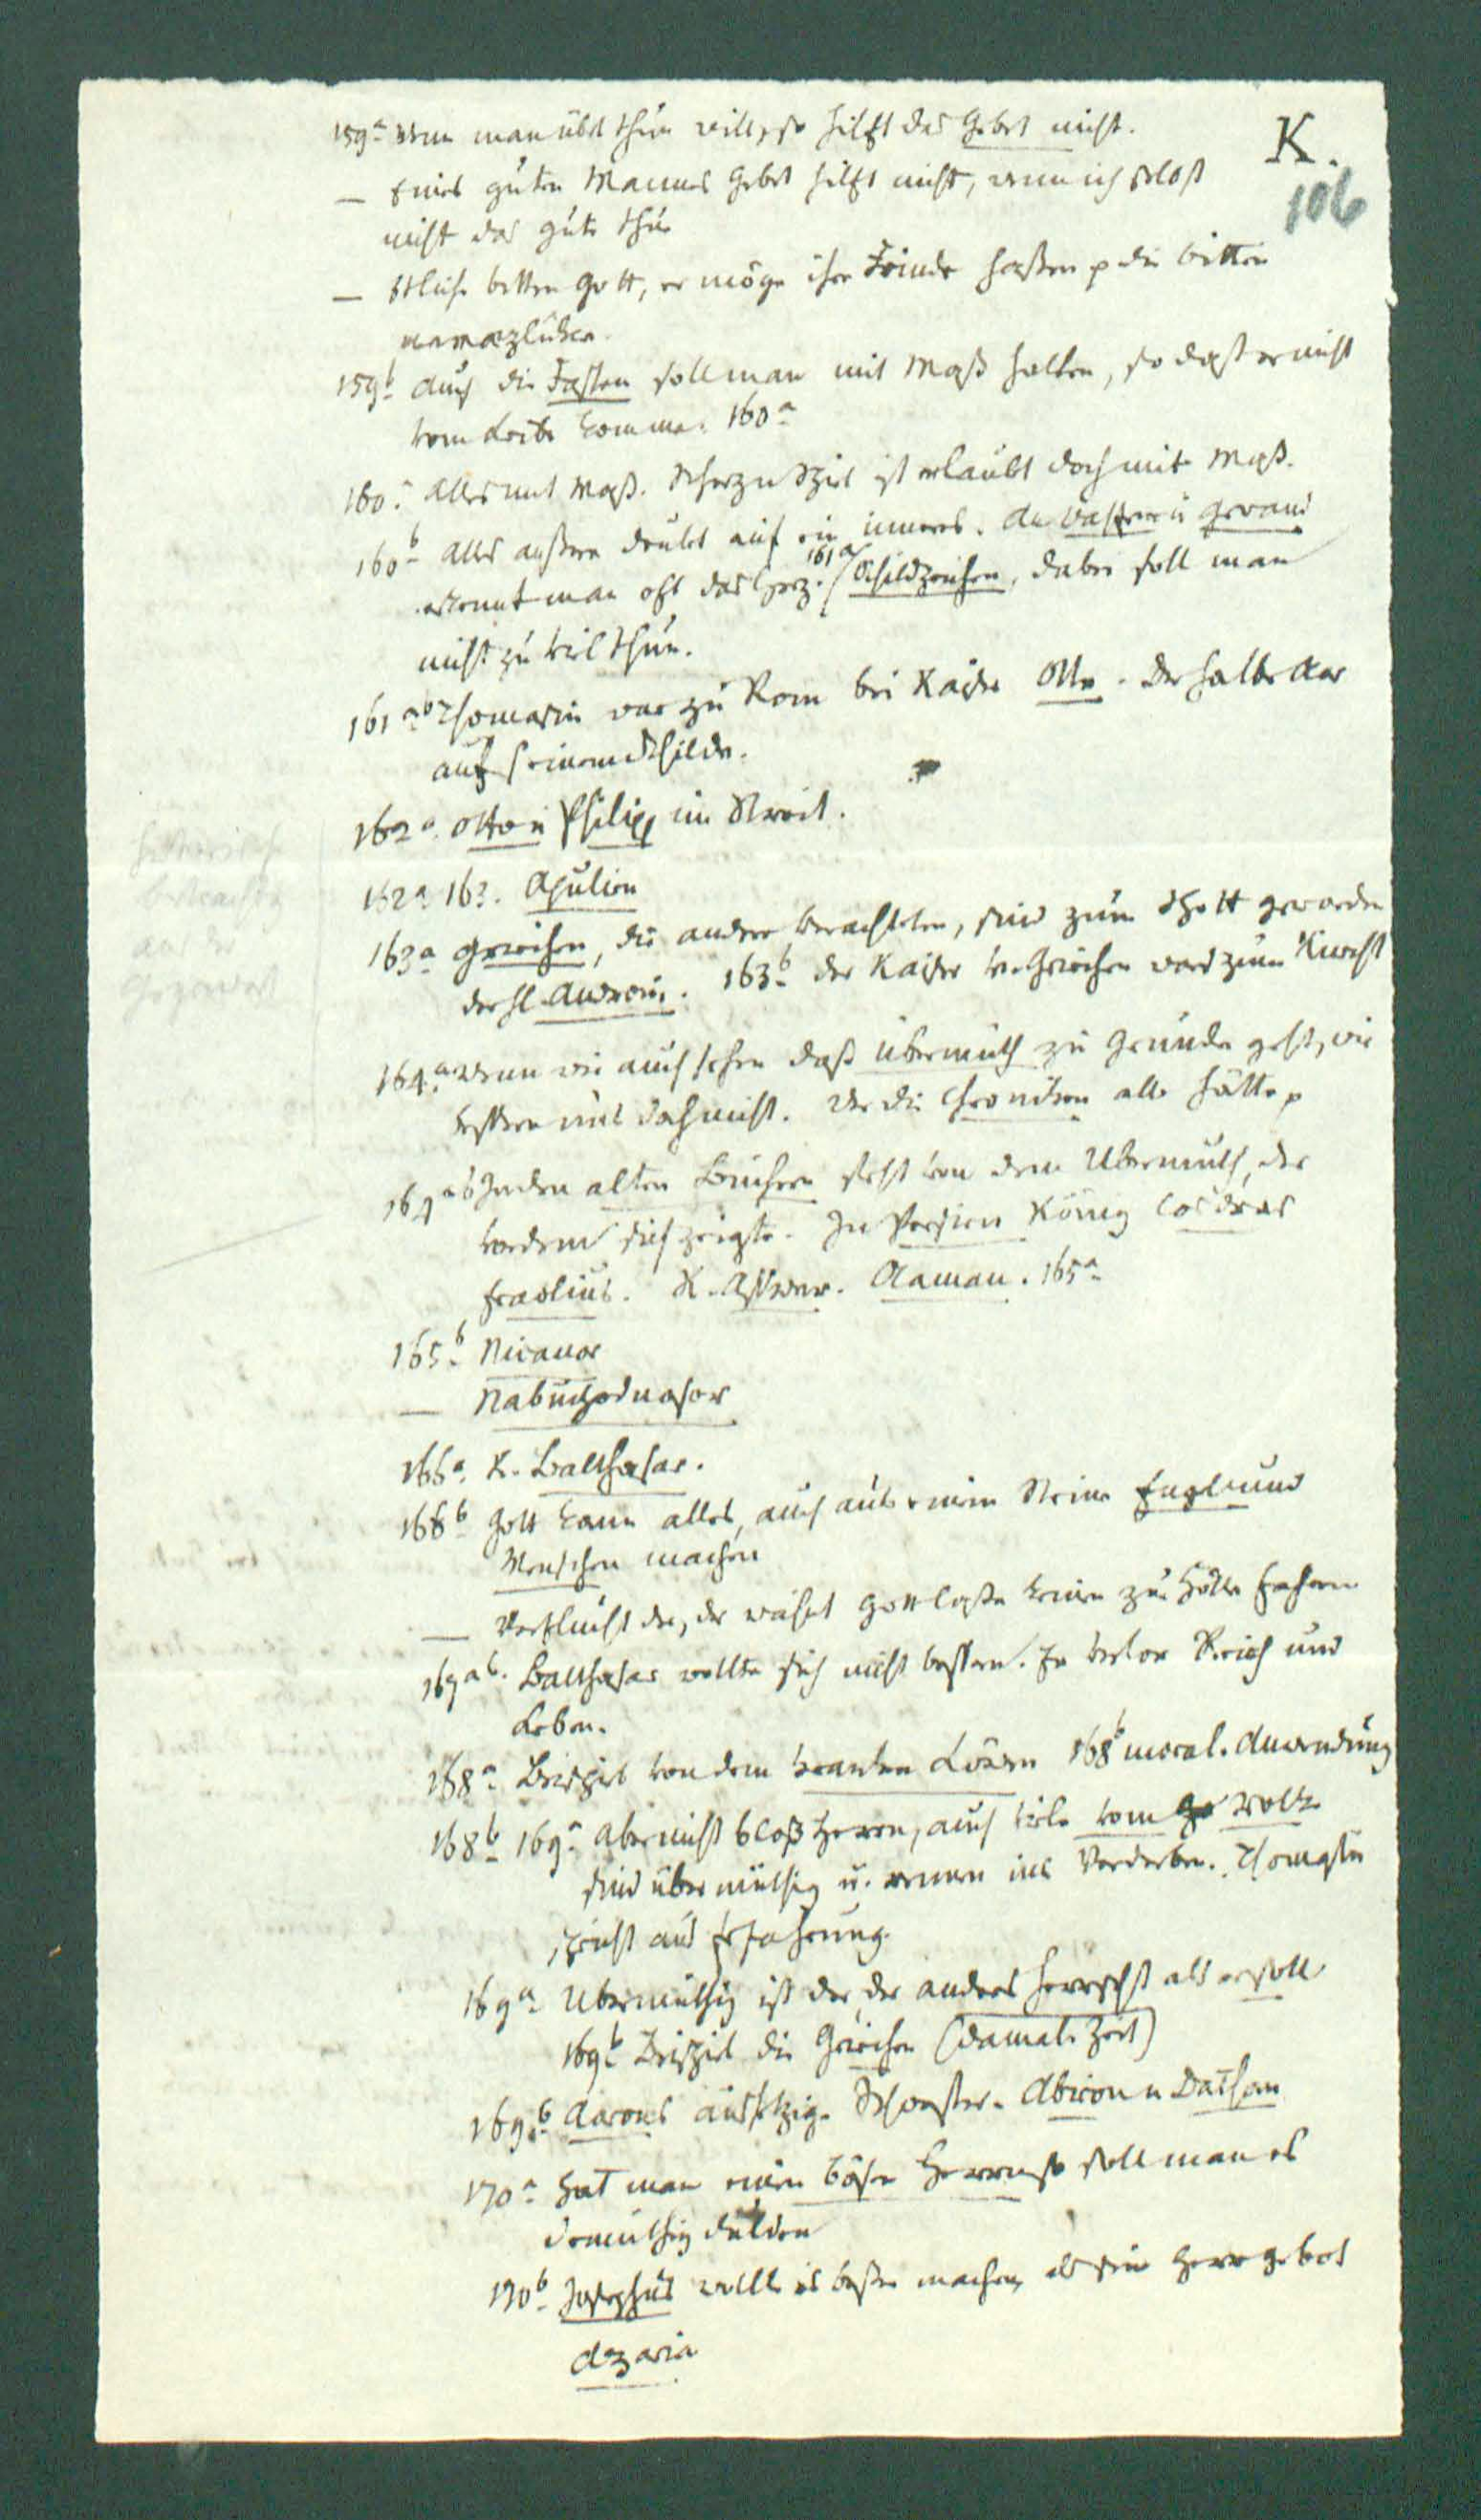 K.
106
159a wenn man übel thun will, so hilft das Gebet nicht.
— Eines guten Mannes Gebet hilft nicht, wenn ich selbst
nicht das gute thu
— Etliche bitten Gott, er möge ihre Feinde hassen p die bitten
159b auch die Fasten soll man mit Maß halten, so daß er nicht
vom Leibe komme. 160a
160a alles mit Maß. Scherz u Spiel ist erlaubt doch mit Maß.
160b alles äußere deutet auf ein inneres. An u Gewand
erkennt man oft das Herz. 161a / Schildzeichen, dabei soll man
nicht zu viel thun.
161ab Thomasin war zu Rom bei Kaiser Otto. Der halbe Aar
auf seinem Schilde.
162a Otto u Philipp im Streit.
162a 163. Apulien
163a Griechen, die andere verachteten, sind zum Spott geworden
163b der Kaiser v. Griechen ward zum Knecht
164a wenn wir auch sehen daß Übermuth zu Grunde geht, wir
bessern uns doch nicht. Wer die Chroniken alle hätte p
164ab In den alten Büchern steht von dem Übermuth, der
vordem sich zeigte. In Persien König Cosdras
Eraclius. K. Asswer. Aaman. 165a
165b Nicanor
— Nabuchodnosor
166a K. Balthasar.
166b Gott kann alles, auch aus einem Steine Engel und
Menschen machen
— Verflucht der, der wähnt Gott lasse keinen zur Hölle fahren
167ab. Balthasar wollte sich nicht bessern. Er verlor Reich und
Leben.
168a Beispiel von dem kranken Löwen 168b moral. Anwendung
168b 169a aber nicht bloß Herren, auch viele vom Volke
sind übermüthig u. rennen ins Verderben. Thomasin
spricht aus Erfahrung.
169a Übermüthig ist der, der anders herrscht als er soll
169b Beispiel die Griechen (damal. Zeit)
169b Aarons aussätzige Schwester. Abiron u Dathan
170a hat man einen bösen Herren so soll man es
demüthig dulden
170b Josephus wollte es besser machen, als sein Herr gebot
Azaria
historische
aus der
Gegenwart